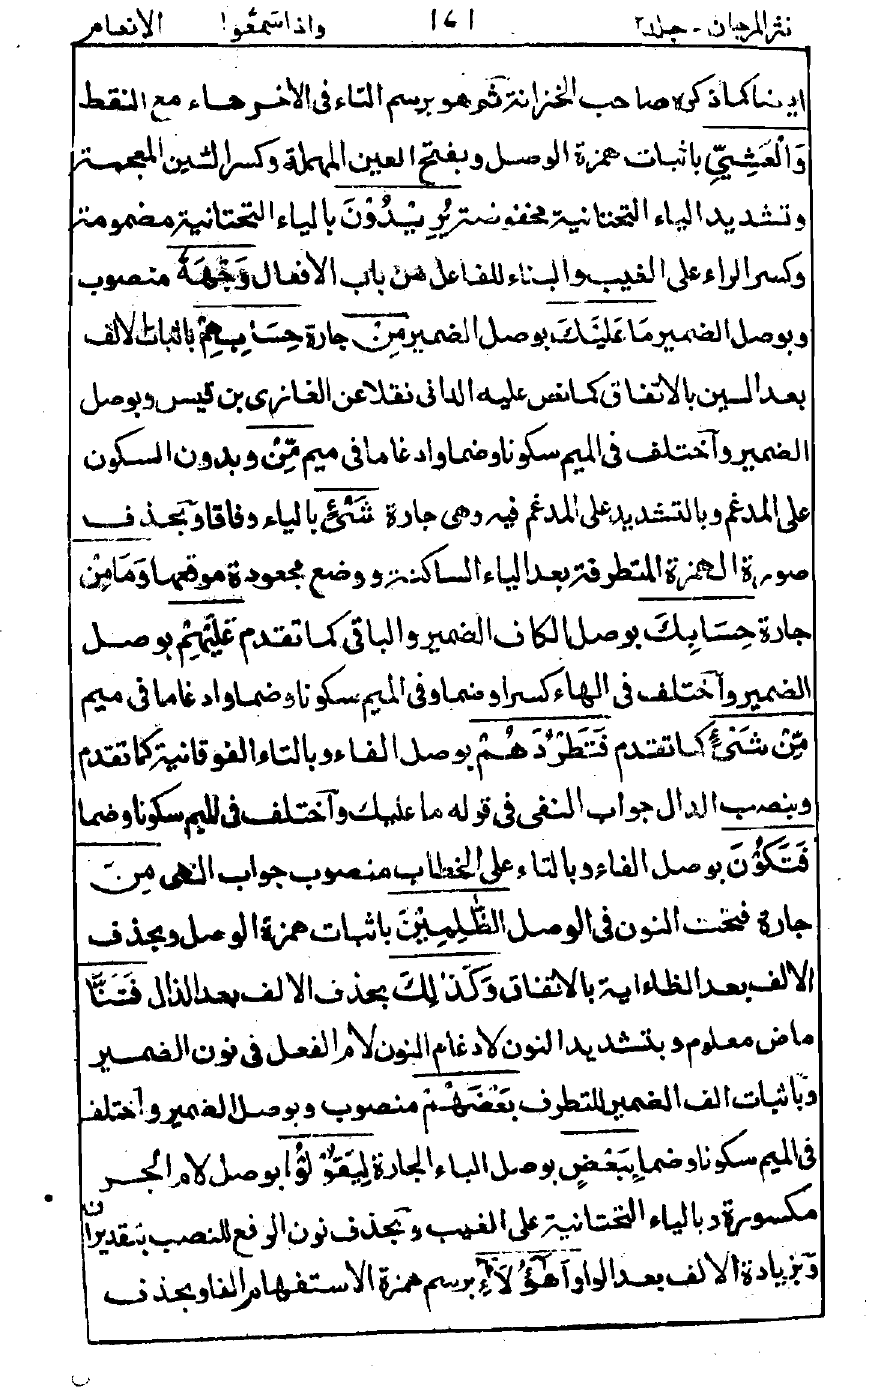 نثر المرجان - جلد ٢ ١٧١ واذا سمعوا الانعام
ايضا كما ذكره صاحب الخزانة ثم هو برسم التاء فى الآخر هاء مع النقط
وَالْعَشِيِّ باثبات همزة الوصل وبفتح العين المهملة وكسر الشين المعجمة
وتشديد الياء التحتانية مخفوضة يُرِيْدُوْنَ بالياء التحتانية مضمومة
وكسر الراء على الغيب والبناء للفاعل من باب الافعال وَجْهَهٗ منصوب
وبوصل الضمير مَا عَلَيْكَ بوصل الضمير مِنْ جارة حِسَابِهِمْ باثبات الالف
بعد السين بالاتفاق كما نص عليه الدانى نقلا عن الغازى بن قيس وبوصل
الضمير وآختلف فى الميم سكونا وضما وادغاما فى ميم مِّنْ وبدون السكون
على المدغم وبالتشديد على المدغم فيه وهى جارة شَىْءٍ بالياء وفاقا وبحذف
صورة الهمزة المتطرفة بعد الياء الساكنة ووضع مجعودة موقعها وَمَا مِنْ
جارة حِسَابِكَ بوصل الكاف الضمير والباقى كما تقدم عَلَيْهِمْ بوصل
الضمير وآختلف فى الهاء كسرا وضما وفى الميم سكونا وضما وادغاما فى ميم
مِّنْ شَىْءٍ كما تقدم فَتَطْرُدَهُمْ بوصل الفاء وبالتاء الفوقانية كما تقدم
وبنصب الدال جواب النفى فى قوله ما عليك وآختلف فى الميم سكونا وضما
فَتَكُوْنَ بوصل الفاء وبالتاء على الخطاب منصوب جواب النهى مِنَ
جارة فتحت النون فى الوصل الظّٰلِمِيْنَ باثبات همزة الوصل وبحذف
الالف بعد الظاء اية بالاتفاق وَكَذٰلِكَ بحذف الالف بعد الذال فَتَنَّا
ماض معلوم وبتشديد النون لادغام النون لام الفعل فى نون الضمير
وباثبات الف الضمير للتطرف بَعْضَهُمْ منصوب وبوصل الضمير وآختلف
فى الميم سكونا وضما بِبَعْضٍ بوصل الباء الجارة لِيَقُوْلُوْا بوصل لام الجر
مكسورة وبالياء التحتانية على الغيب وبحذف نون الرفع للنصب بتقدير ان
وبزيادة الالف بعد الواو اَهٰؤُلَاءِ برسم همزة الاستفهام الفا وبحذف